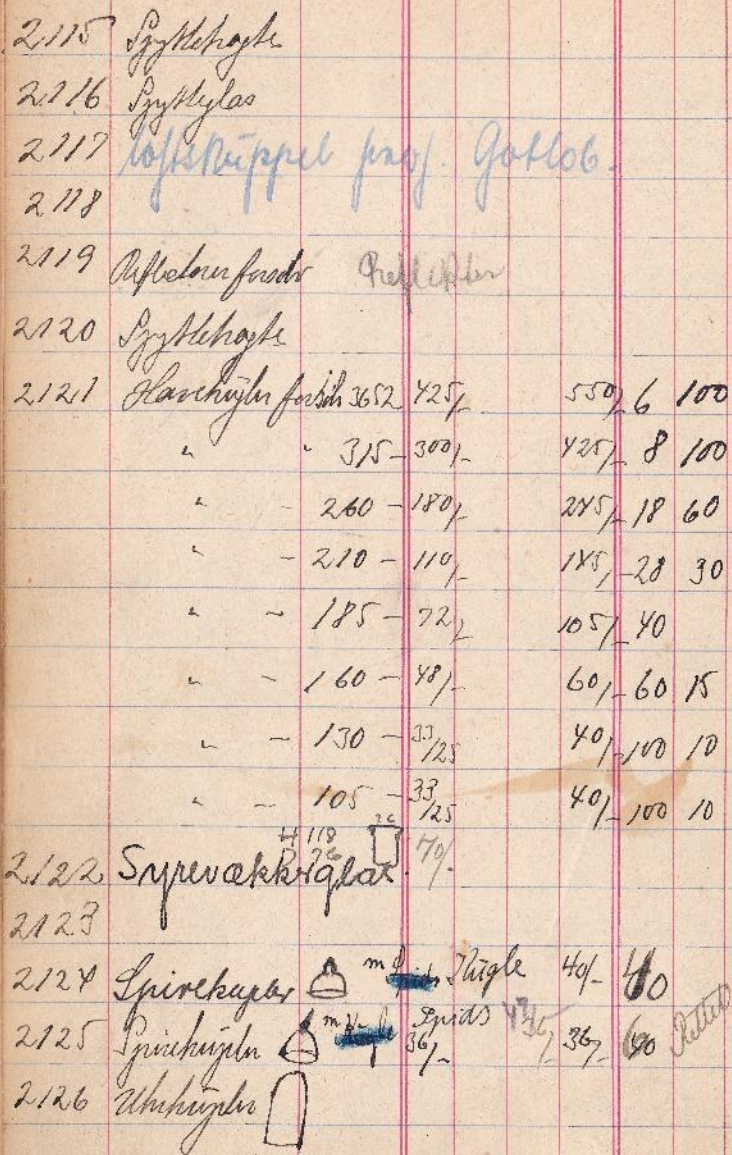 2115 Spyttekopte
2116 Spytteglas
2117 loftskuppel prof. Gotlob.
2118
2119 Reflektorer forsch Reflektor
2120 Spyttekopte
2121 Havekugler forsch 3652 425/- 550/- 6 100
" " 315 - 300/- 425/- 8 100
" - 260 - 180/- 245/- 18 60
" - 210 - 110/- 145/- 28 30
" - 185 - 72/- 105/- 40
" - 160 - 48/- 60/- 60 15
" - 130 - 33/125 40/- 100 10
" - 105 - 33/125 40/- 100 10
H 118
2122 Syrevækkerglas 70/-
2123
2124 Spirekupler m Kugle 40/- 40
2125 Spirekupler m Spids 36/- 36/- 60 Rettet
2126 Uhrkupler